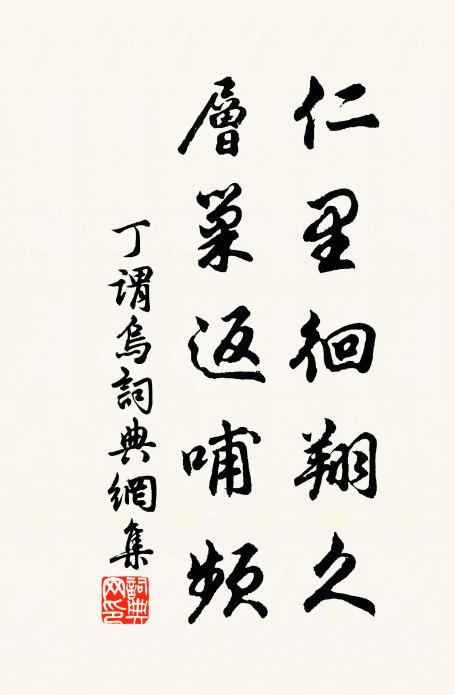 仁里徊翔久
層巢返哺頻
丁謂烏詞典網集
詞典網印